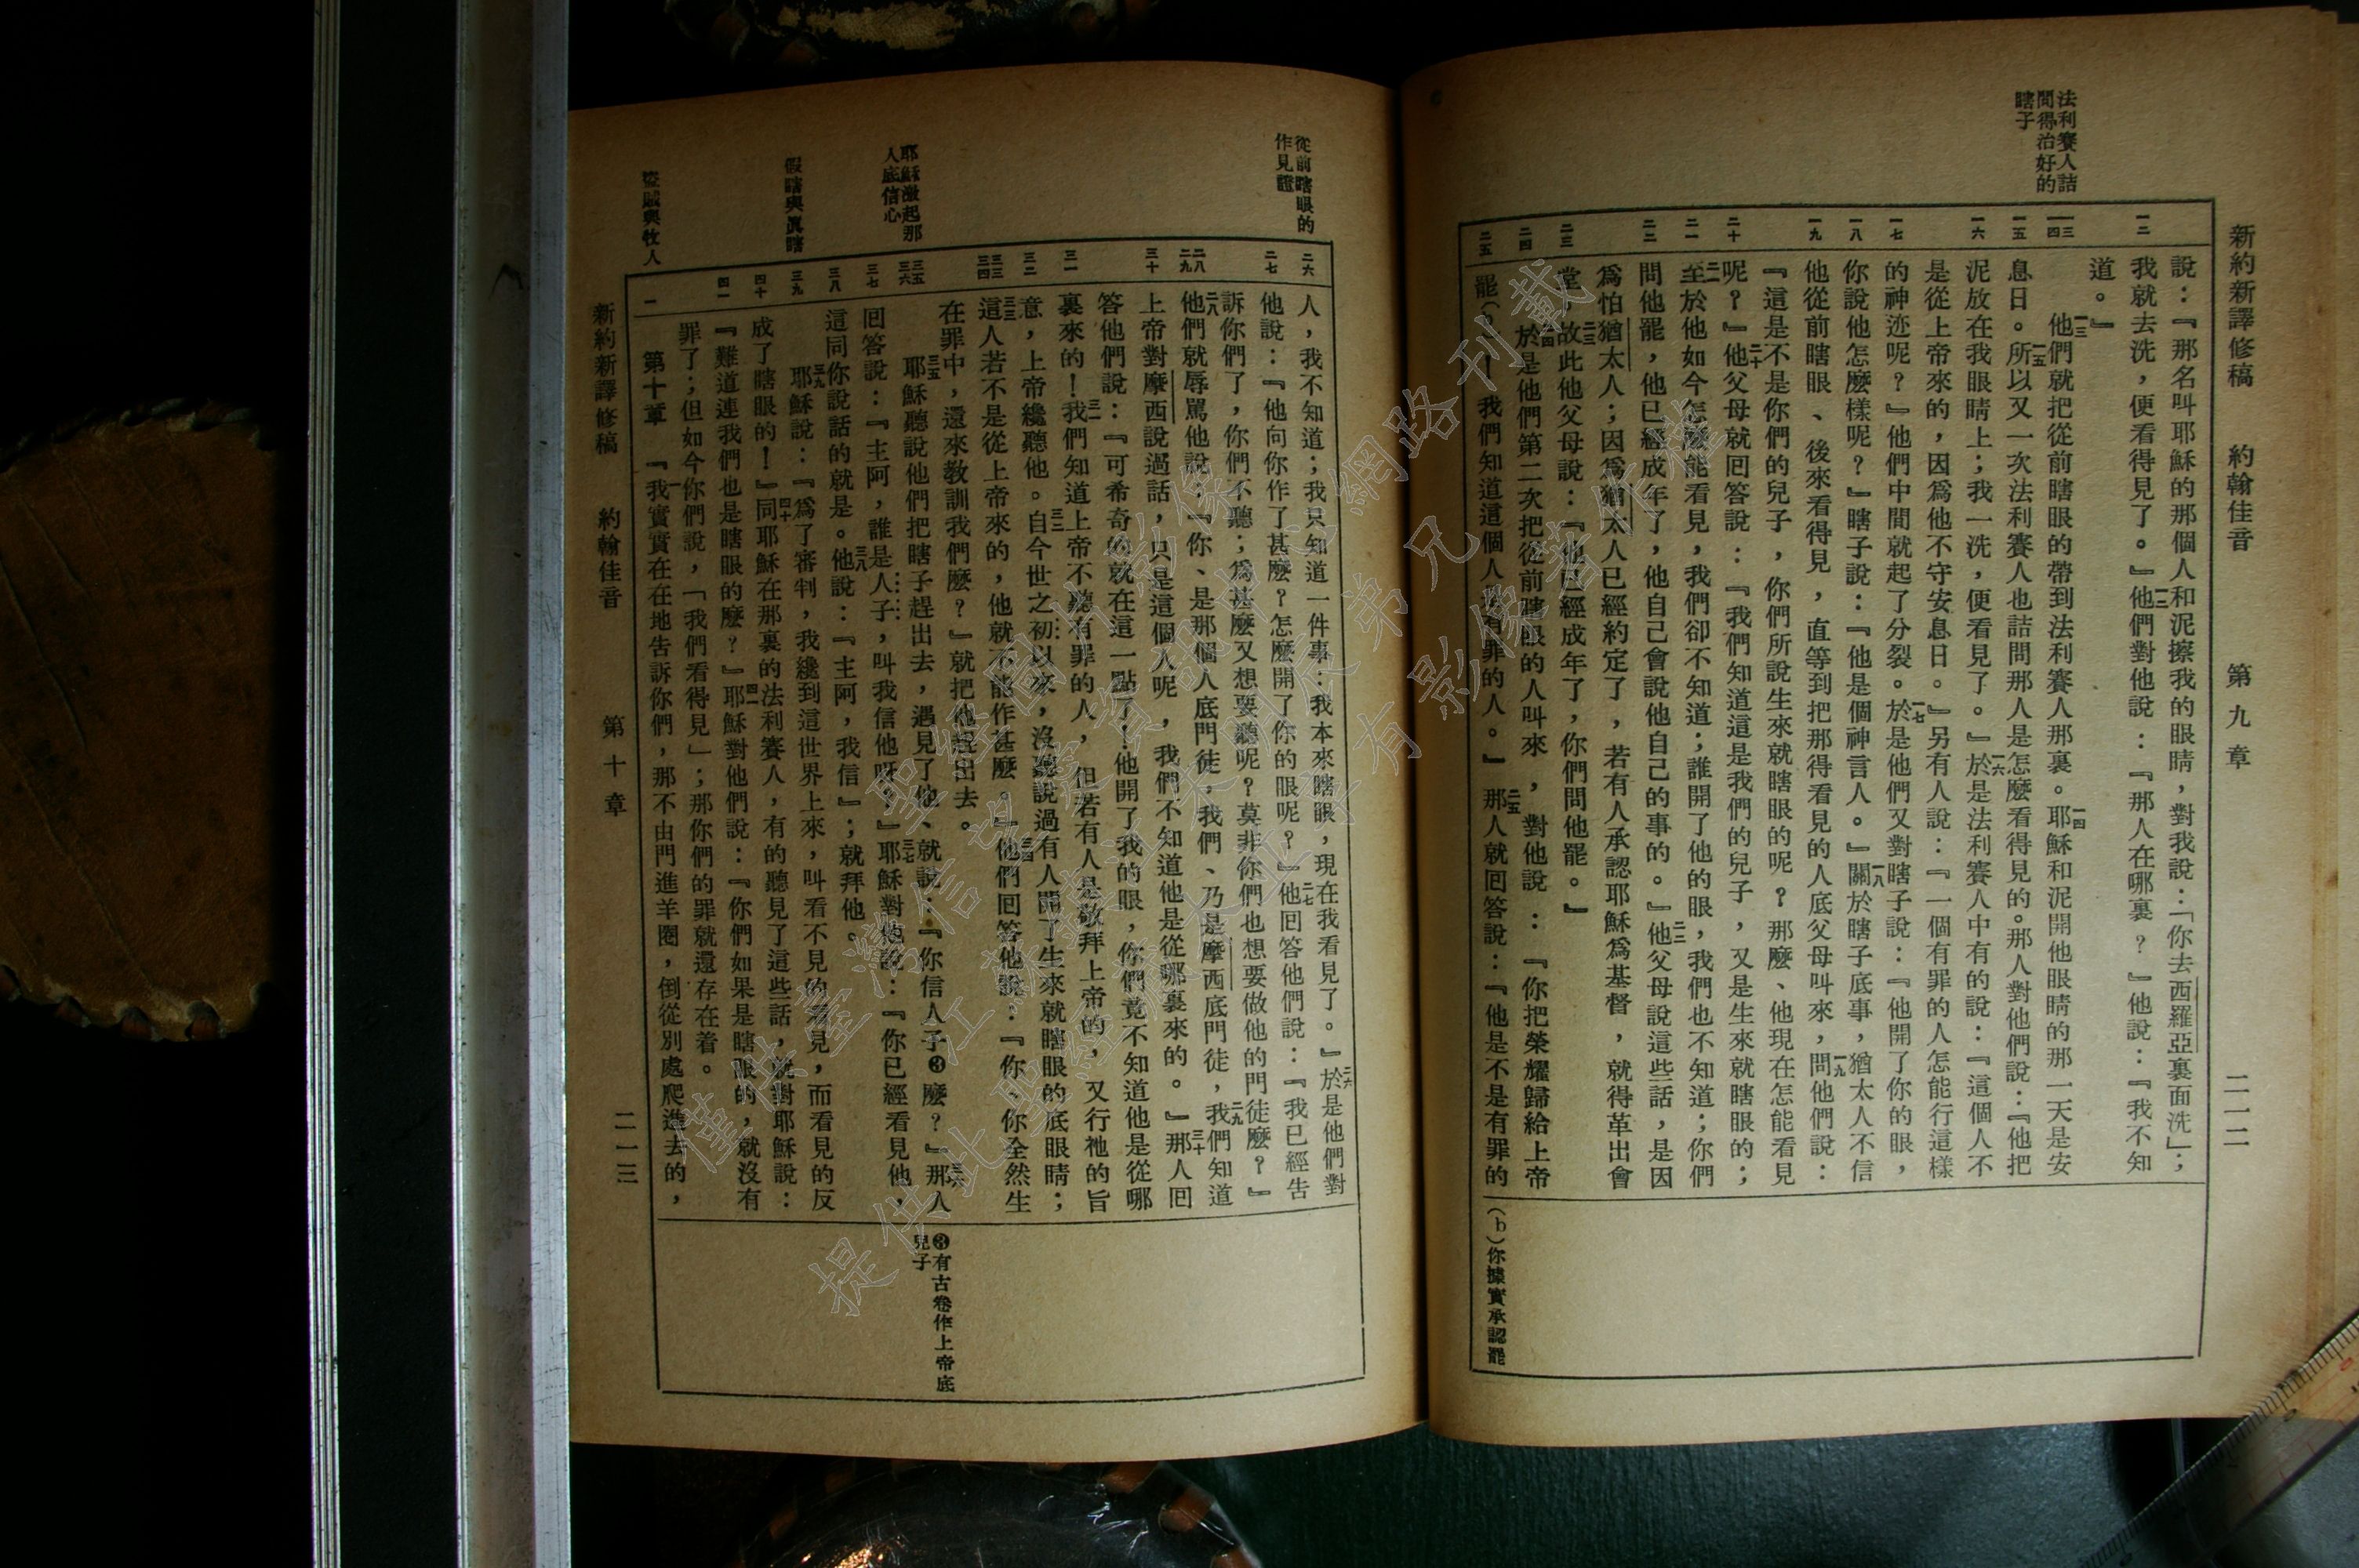 新約新譯修稿 約翰佳音 第九章 二一二
法利賽人詰
問得治好的
瞎子
一二
一三
一四
一五
一六
一七
一八
一九
二十
二一
二二
二三
二四
二五
說：『那名叫耶穌的那個人和泥擦我的眼睛，對我說：「你去西羅亞裏面洗」；
我就去洗，便看得見了。』一二他們對他說：『那人在哪裏？』他說：『我不知
道。』
一三他們就把從前瞎眼的帶到法利賽人那裏。一四耶穌和泥開他眼睛的那一天是安
息日。一五所以又一次法利賽人也詰問那人是怎麼看得見的。那人對他們說：『他把
泥放在我眼睛上；我一洗，便看見了。』一六於是法利賽人中有的說：『這個人不
是從上帝來的，因爲他不守安息日。』另有人說：『一個有罪的人怎能行這樣
的神迹呢？』他們中間就起了分裂。一七於是他們又對瞎子說：『他開了你的眼，
你說他怎麼樣呢？』瞎子說：『他是個神言人。』一八關於瞎子底事，猶太人不信
他從前瞎眼、後來看得見，直等到把那得看見的人底父母叫來，一九問他們說：
『這是不是你們的兒子，你們所說生來就瞎眼的呢？那麼、他現在怎能看見
呢？』二十他父母就回答說：『我們知道這是我們的兒子，又是生來就瞎眼的；
二一至於他如今怎麼能看見，我們卻不知道；誰開了他的眼，我們也不知道；你們
問他罷，他已經成年了，他自己會說他自己的事的。』二二他父母說這些話，是因
爲怕猶太人；因爲猶太人已經約定了，若有人承認耶穌爲基督，就得革出會
堂，二三故此他父母說：『他已經成年了，你們問他罷。』
二四於是他們第二次把從前瞎眼的人叫來，對他說：『你把榮耀歸給上帝
罷(b)！我們知道這個人是有罪的人。』二五那人就回答說：『他是不是有罪的
(b)你據實承認罷
從前瞎眼的
作見證
耶穌激起那
人底信心
假瞎與眞瞎
盜賊與牧人
二六
二七
二八
二九
三十
三一
三二
三三
三四
三五
三六
三七
三八
三九
四十
四一
一
人，我不知道；我只知道一件事：我本來瞎眼，現在我看見了。』二六於是他們對
他說：『他向你作了甚麼？怎麼開了你的眼呢？』二七他回答他們說：『我已經告
訴你們了，你們不聽；爲甚麼又想要聽呢？莫非你們也想要做他的門徒麼？』
二八他們就辱罵他說：『你、是那個人底門徒，我們、乃是摩西底門徒，二九我們知道
上帝對摩西說過話，只是這個人呢，我們不知道他是從哪裏來的。』三十那人回
答他們說：『可希奇的就在這一點了！他開了我的眼，你們竟不知道他是從哪
裏來的！三一我們知道上帝不聽有罪的人，但若有人是敬拜上帝的，又行祂的旨
意，上帝纔聽他。三二自今世之初以來，沒聽說過有人開了生來就瞎眼的底眼睛；
三三這人若不是從上帝來的，他就不能作甚麼。』三四他們回答他說：『你、你全然生
在罪中，還來教訓我們麼？』就把他趕出去。
三五耶穌聽說他們把瞎子趕出去，遇見了他、就說：『你信人子❸麼？』三六那人
回答說：『主阿，誰是人子，叫我信他呀？』三七耶穌對他說：『你已經看見他，
這同你說話的就是。三八他說：『主阿，我信』；就拜他。
三九耶穌說：『爲了審判，我纔到這世界上來，叫看不見的看見，而看見的反
成了瞎眼的！』四十同耶穌在那裏的法利賽人，有的聽見了這些話，就對耶穌說：
『難道連我們也是瞎眼的麼？』四一耶穌對他們說：『你們如果是瞎眼的，就沒有
罪了；但如今你們說，「我們看得見」；那你們的罪就還存在着。
第十章 一『我實實在在地告訴你們，那不由門進羊圈，倒從別處爬進去的，
❸有古卷作上帝底
兒子
新約新譯修稿 約翰佳音 第十章 二一三